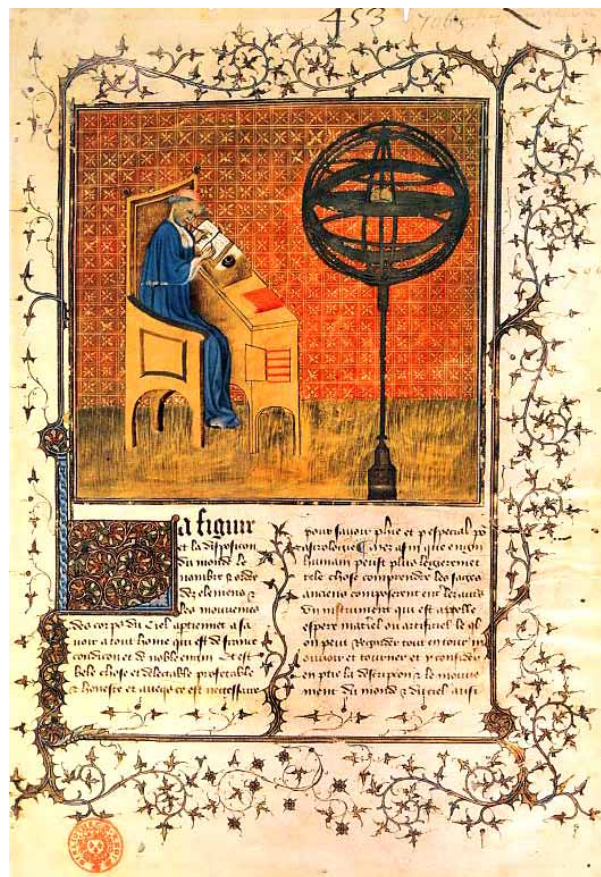 453
La figure
et la disposicion
du monde le
nombre & ordre
des elemens &
les mouvemens
des corps du ciel aptiennent a sa
voir a tout home qui est de france
condicion et de noble engin Et est
bele chose et delectable profetable
& honeste et
pour savoir
astrologie Car afin que engin
humain peust plus legierement
tele chose comprendre les sages
anciens composerent
un instrument qui est appelle
espere materiel ou artificiel
on peut regarder tout entour
et tourner et y considerer
en ptie la discripcion & le mouve
ment du monde & du ciel aussi